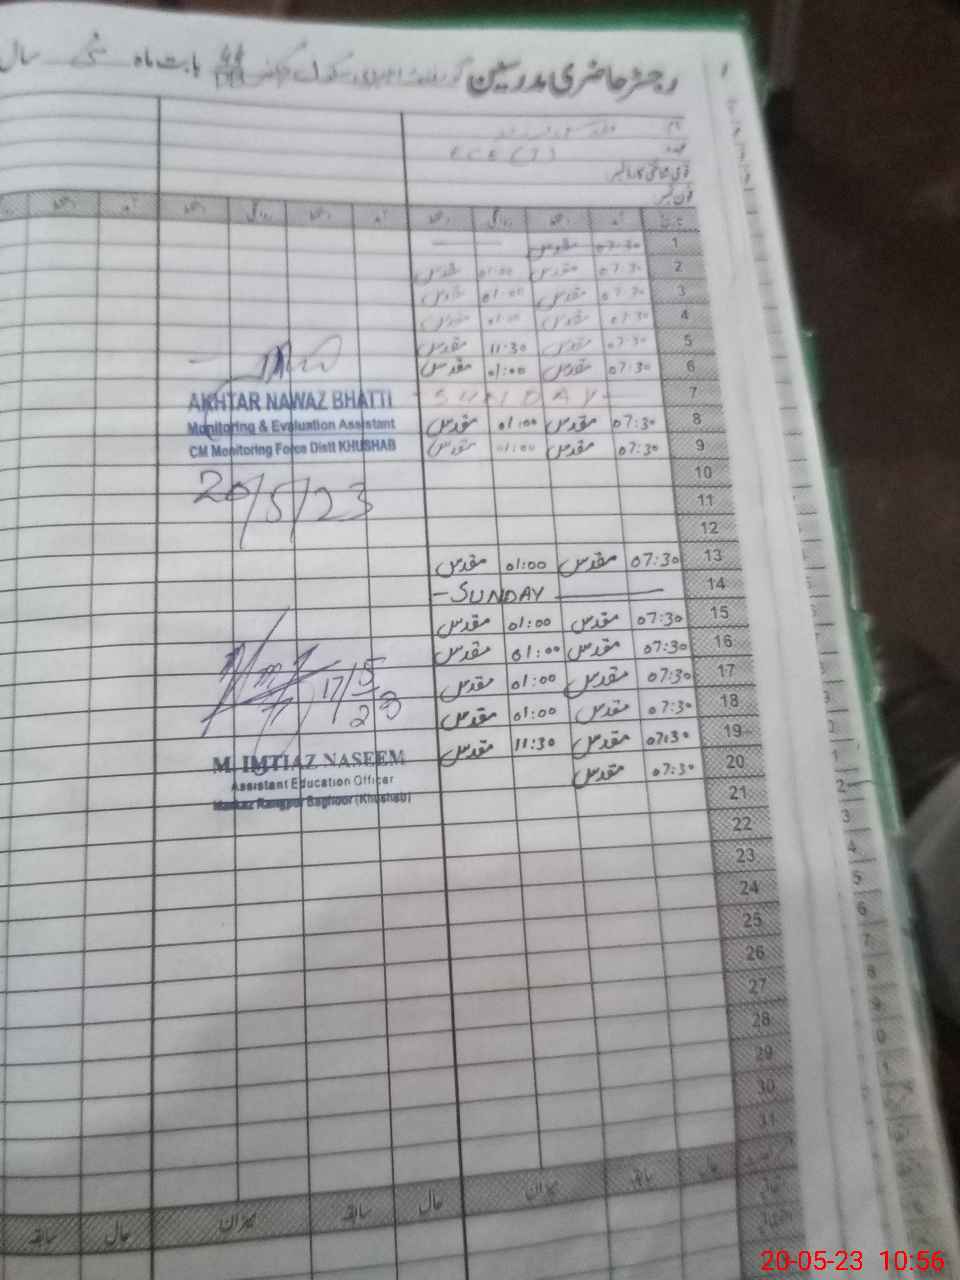 رجسٹر حاضری مدرسین گورنمنٹ سکول بابت ماہ مئی سال
نام
عہدہ
ECE (T)
قومی شناختی کارڈ نمبر
فون نمبر
تاریخ آمد دستخط روانگی دستخط آمد دستخط روانگی دستخط آمد دستخط
1 07:30 مقدس
2 07:30 مقدس 01:00 مقدس
3 07:30 مقدس 01:00 مقدس
4 07:30 مقدس 01:00 مقدس
5 07:30 مقدس 11:30 مقدس
6 07:30 مقدس 01:00 مقدس
7 - SUNDAY -
8 07:30 مقدس 01:00 مقدس
9 07:30 مقدس 01:00 مقدس
10
11
12
13 07:30 مقدس 01:00 مقدس
14 - SUNDAY -
15 07:30 مقدس 01:00 مقدس
16 07:30 مقدس 01:00 مقدس
17 07:30 مقدس 01:00 مقدس
18 07:30 مقدس 01:00 مقدس
19 07:30 مقدس 11:30 مقدس
20 07:30 مقدس
21
22
23
24
25
26
27
28
29
30
31
حال سابقہ میزان حال سابقہ میزان حال سابقہ
AKHTAR NAWAZ BHATTI
Monitoring & Evaluation Assistant
CM Monitoring Force Distt KHUSHAB
20/5/23
17/5/23
M. IMTIAZ NASEEM
Assistant Education Officer
Markaz Rangpur Baghoor (Khushab)
20-05-23 10:56